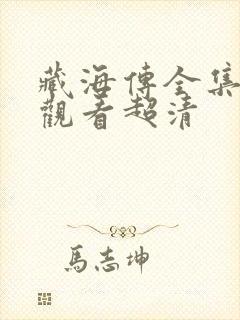 藏海傳全集
觀看超清
馬志坤